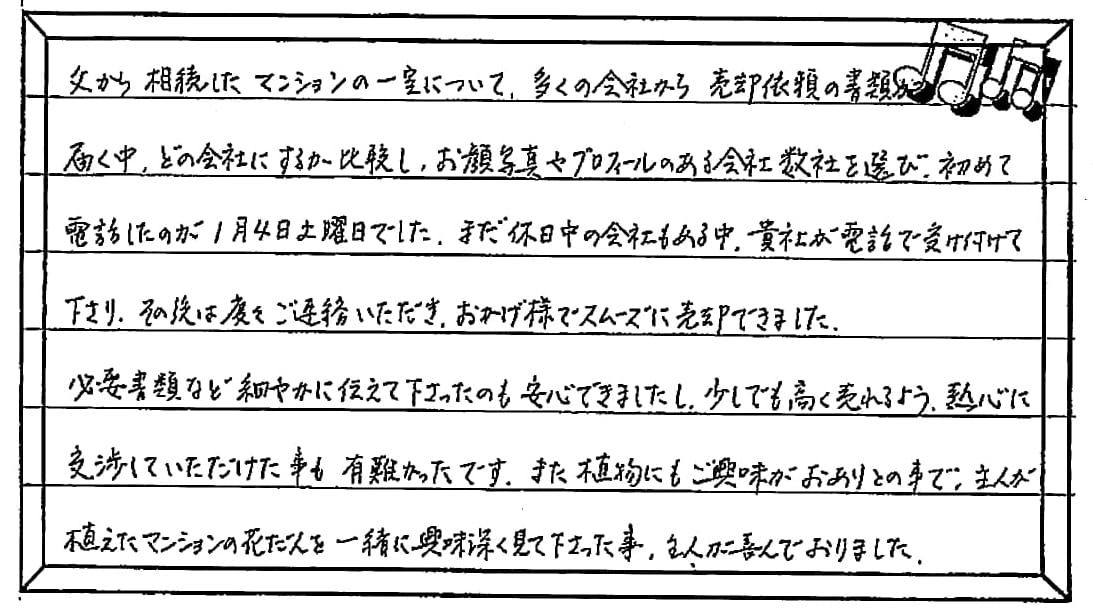 父から相続したマンションの一室について、多くの会社から売却依頼の書類が
届く中、どの会社にするか比較し、お顔写真やプロフィールのある会社数社を選び、初めて
電話したのが1月4日土曜日でした。まだ休日中の会社もある中、貴社が電話で受け付けて
下さり、その後は度々ご連絡いただき、おかげ様でスムーズに売却できました。
必要書類など細やかに伝えて下さったのも安心できましたし、少しでも高く売れるよう、熱心に
交渉していただけた事も有難かったです。また植物にもご興味がおありとの事で、主人が
植えたマンションの花だんを一緒に興味深く見て下さった事、主人が喜んでおりました。